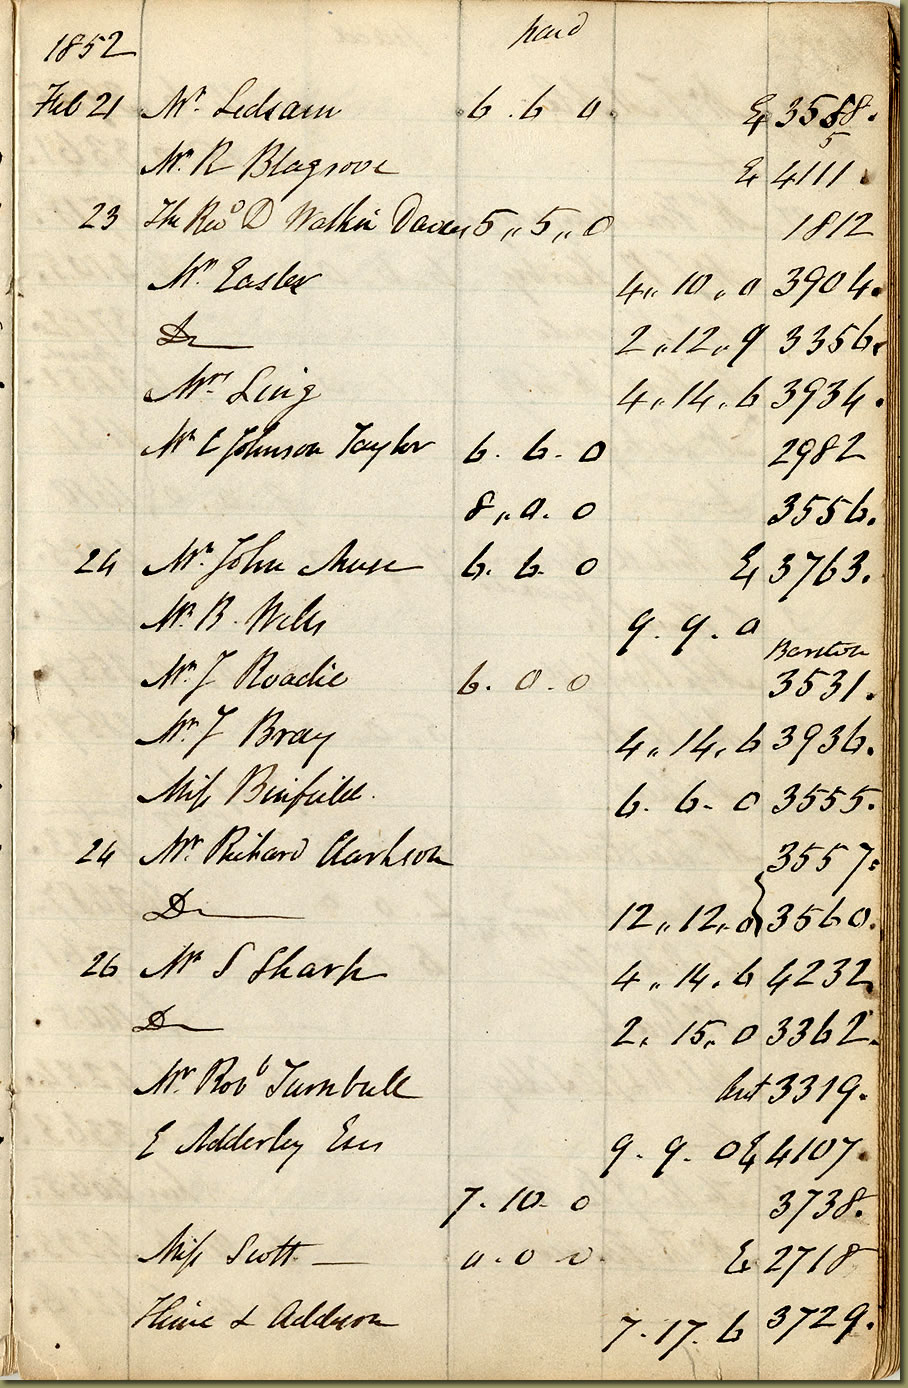 1852 paid
Feb 21 Mr. Ledsam 6.6.0 E 3588.
5
Mr. R Blagrove E 4111.
23 The Revd D Watkin Davies 5,,5,,0 1812
Mr Easler 4,,10,,0 3904.
Do 2,,12,,9 3356.
Mrs Ling 4,,14,,6 3934.
Mr C Johnson Taylor 6.6.0 2982
8,,0.0 3556.
24 Mr. John Muse 6.6.0 E 3763.
Mr. B. Wells 9.9.0
3531.
Mr J Roadie 6.0.0
Mr J Bray 4,,14,,6 3936.
Miss Binfield. 6.6.0 3555.
24 Mr. Richard Clarkson 3557.
Do 12,,12,,0 } 3560.
26 Mr S Sharp 4,,14.6 4232.
Do 2.15.0 3362.
Mr Robt Turnbull 3319.
E Adderley Esq 9.9.0 E 4107.
7.10.0 3738.
Miss Scott 0.0.0 E 2718
& Addison 7.17.6 3729.